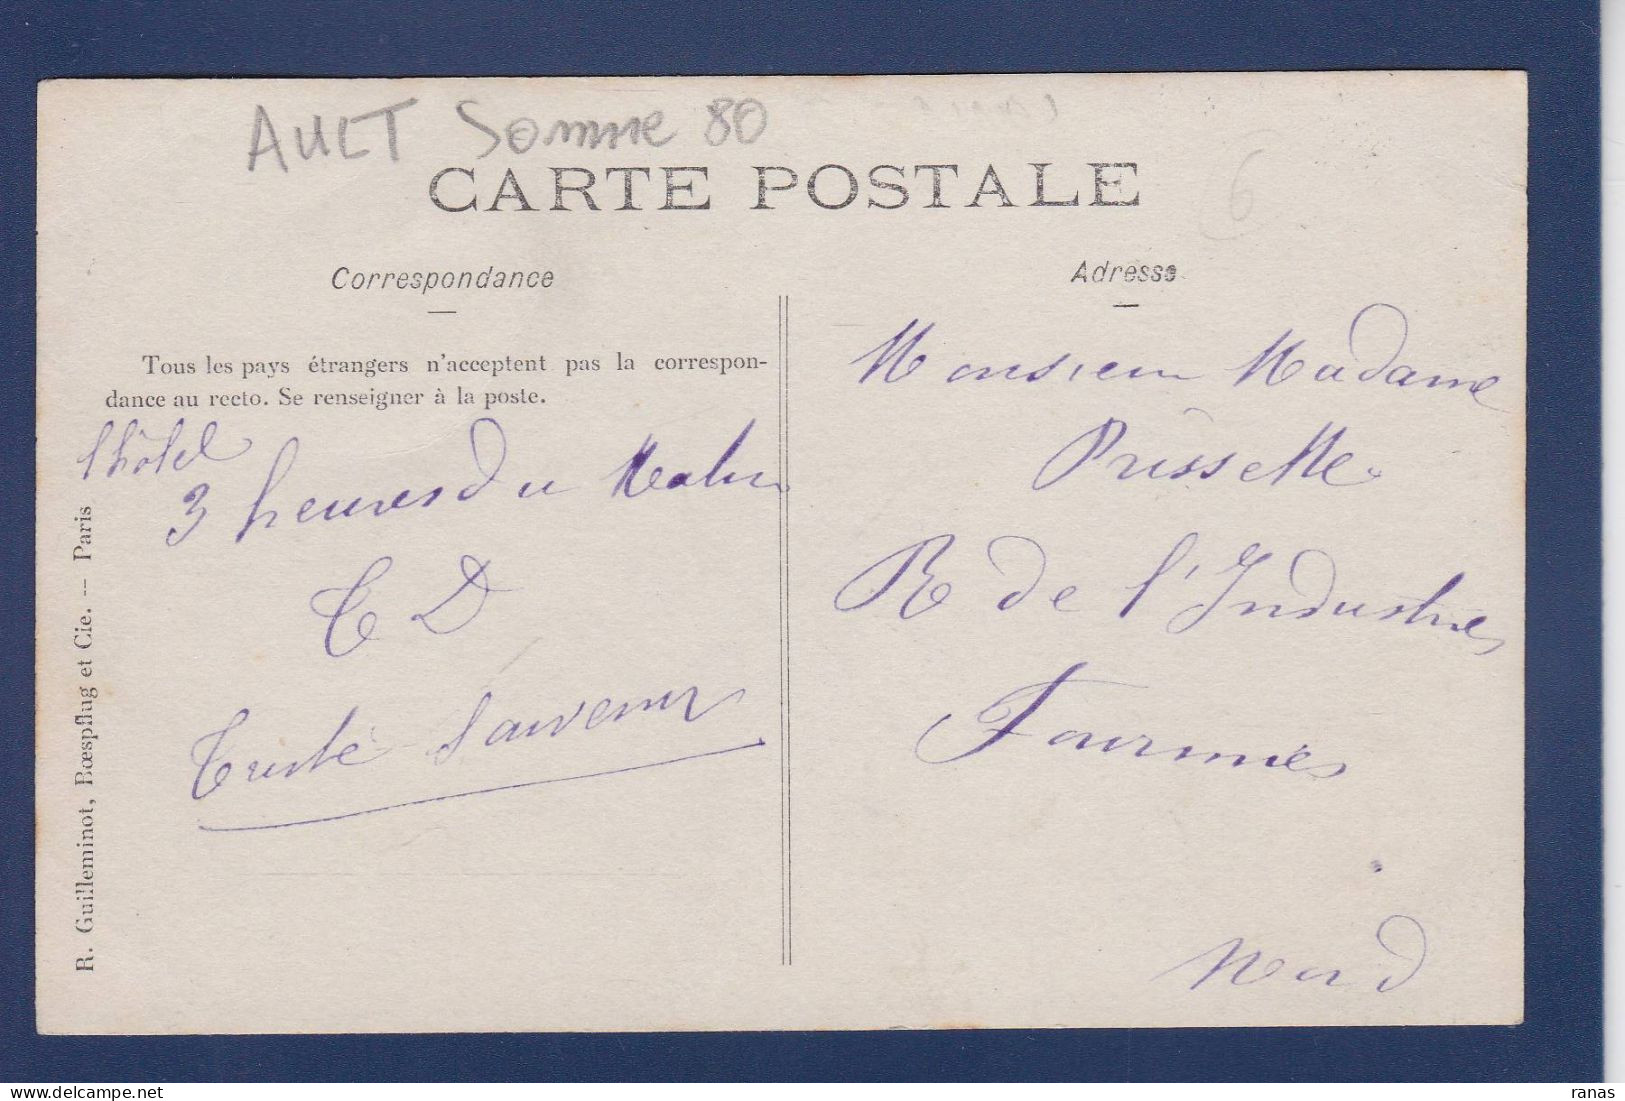 AULT Somme 80
CARTE POSTALE
Correspondance
Adresse
Tous les pays étrangers n'acceptent pas la correspon-
dance au recto. Se renseigner à la poste.
l'hôtel
3 heures du Matin
T D
Triste Souvenir
Monsieur Madame
Prissette
R de l'Industrie
Fourmies
Nord
R. Guilleminot, Bœspflug et Cie. -- Paris
ranas